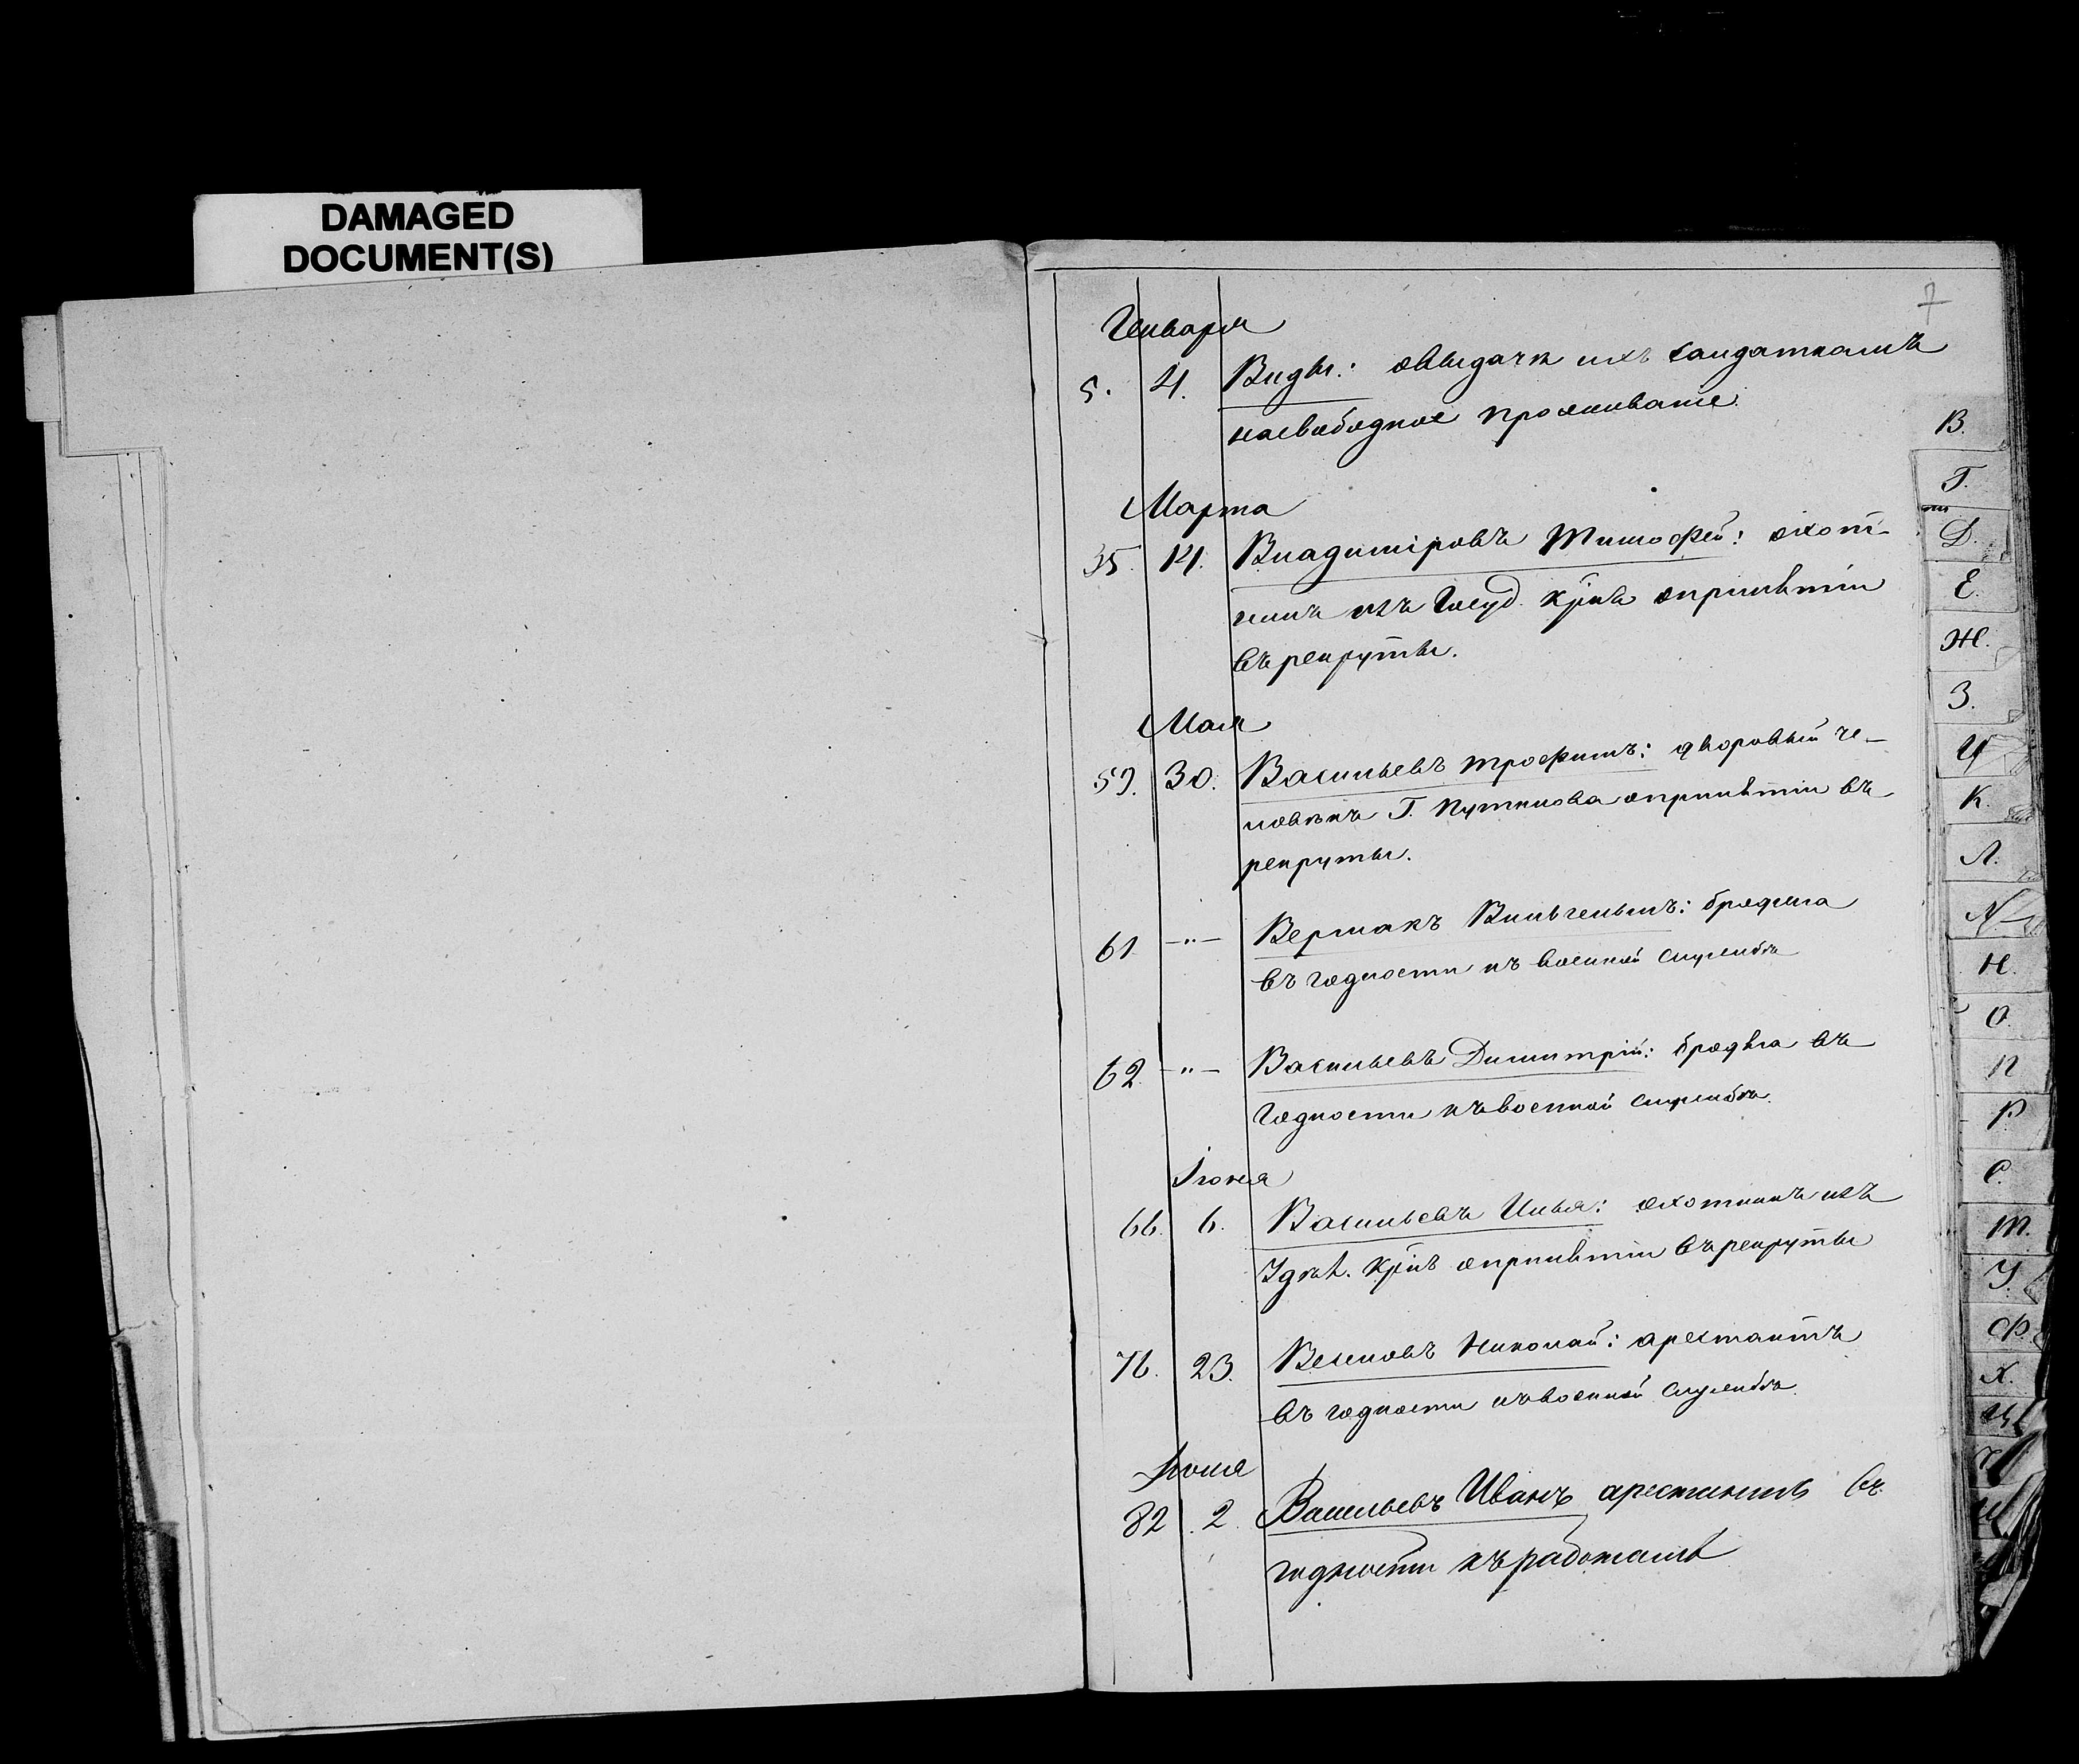 DAMAGED
DOCUMENT(S)
7
Генваря
5. 4. Виды: овыдачи ихъ солдаткамъ
насвободное проживаніе.
Марта
35. 14. Владиміровъ Тимофей: охот-
никъ изъ Госуд. крнъ опринятіи
въ рекруты.
Мая
59. 30. Васильевъ Трофимъ: дворовый че-
ловѣкъ Г. опринятіи въ
рекруты.
61 -"- Вермакъ Вильгельмъ: бродяга
въ годности къ военной службѣ
62. -"- Васильевъ Димитрій: бродяга въ
годности къ военной службѣ.
Іюня
66. 6. Васильевъ Илья: охотникъ изъ
Удѣл. крнъ опринятіи въ рекруты
76. 23. Николай: арестантъ
въ годности къ военной службѣ.
Іюля
82 2. Васильевъ Иванъ арестантъ въ
годности къ работамъ
В.
Г.
Д.
Е.
Ж.
З.
И
К.
Л.
М.
Н.
О.
П
Р.
С.
Т.
У.
Ф.
Х.
Ц
Ч
Ш